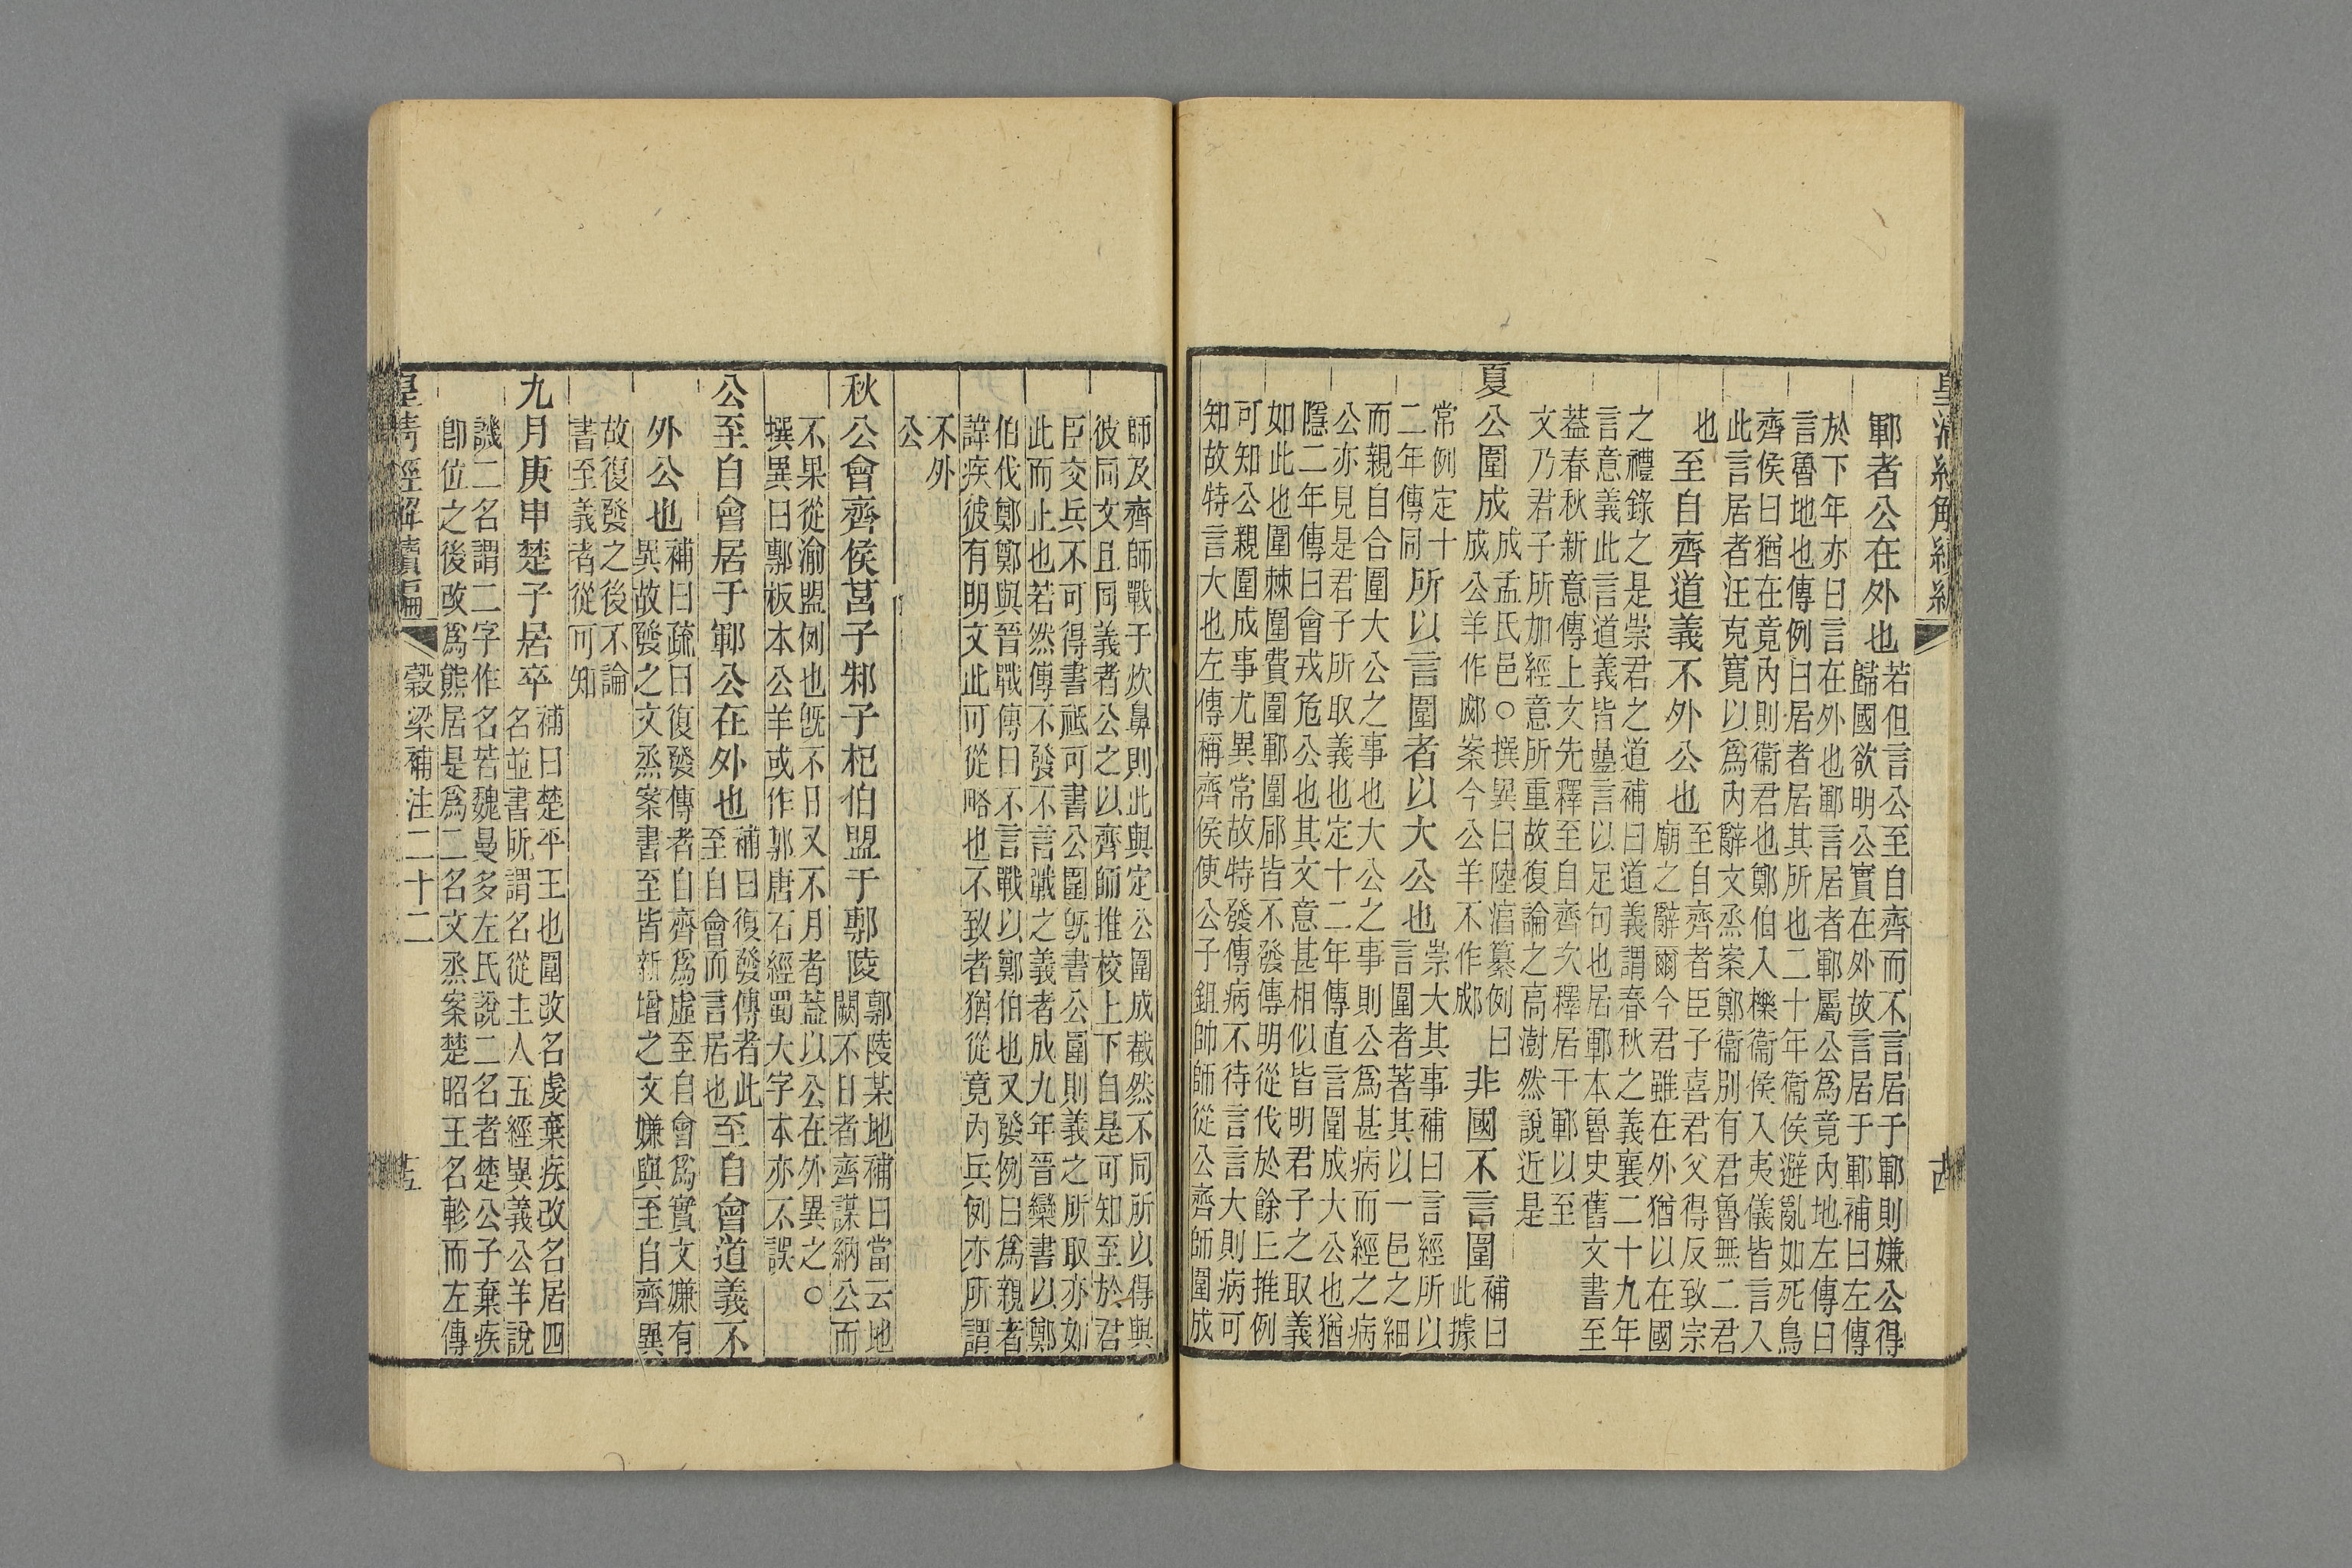 鄆者公在外也
若但言公至自齊而不言居于鄆則嫌公得
歸國欲明公實在外故言居于鄆補曰左傳
於下年亦曰言在外也鄆言居者鄆屬公爲竟內地左傳曰
言魯地也傳例曰居者居其所也二十年衞侯避亂如死鳥
齊侯曰猶在竟內則衞君也鄭伯入櫟衞侯入夷儀皆言入
此言居者汪克寬以爲內辭文烝案鄭衞別有君魯無二君
也
至自齊道義不外公也
至自齊者臣子喜君父得反致宗
廟之辭爾今君雖在外猶以在國
之禮錄之是崇君之道補曰道義謂春秋之義襄二十九年
言意義此言道義皆曡言以足句也居鄆本魯史舊文書至
葢春秋新意傳上文先釋至自齊次釋居于鄆以至
文乃君子所加經意所重故復論之高澍然說近是
夏公圍成
成孟氏邑○撰異曰陸淳纂例曰
成公羊作郕案今公羊不作郕
非國不言圍
補曰
此據
常例定十
二年傳同
所以言圍者以大公也
崇大其事補曰言經所以
言圍者著其以一邑之細
而親自合圍大公之事也大公之事則公爲甚病而經之病
公亦見是君子所取義也定十二年傳直言圍成大公也猶
隱二年傳曰會戎危公也其文意甚相似皆明君子之取義
如此也圍棘圍費圍鄆圍郈皆不發傳明從伐於餘丘推例
可知公親圍成事尤異常故特發傳病不待言言大則病可
知故特言大也左傳稱齊侯使公子鉏帥師從公齊師圍成
師及齊師戰于炊鼻則此與定公圍成截然不同所以得與
彼同文且同義者公之以齊師推校上下自是可知至於君
臣交兵不可得書祗可書公圍旣書公圍則義之所取亦如
此而止也若然傳不發不言戰之義者成九年晉欒書以鄭
伯伐鄭鄭與晉戰傳曰不言戰以鄭伯也又發例曰爲親者
諱疾彼有明文此可從略也不致者猶從竟內兵例亦所謂
不外
公
秋公會齊侯莒子邾子杞伯盟于鄟陵
鄟陵某地補曰當云地
闕不日者齊謀納公而
不果從渝盟例也旣不日又不月者葢以公在外異之○
撰異曰鄟板本公羊或作郭唐石經蜀大字本亦不誤
公至自會居于鄆公在外也
補曰復發傳者此
至自會而言居也
至自會道義不
外公也
補曰疏曰復發傳者自齊爲虛至自會爲實文嫌有
異故發之文烝案書至皆新增之文嫌與至自齊異
故復發之後不論
書至義者從可知
九月庚申楚子居卒
補曰楚平王也圍改名虔棄疾改名居四
名並書所謂名從主人五經異義公羊說
譏二名謂二字作名若魏曼多左氏說二名者楚公子棄疾
卽位之後改爲熊居是爲二名文烝案楚昭王名軫而左傳
皇清經解續編
穀梁補注二十二